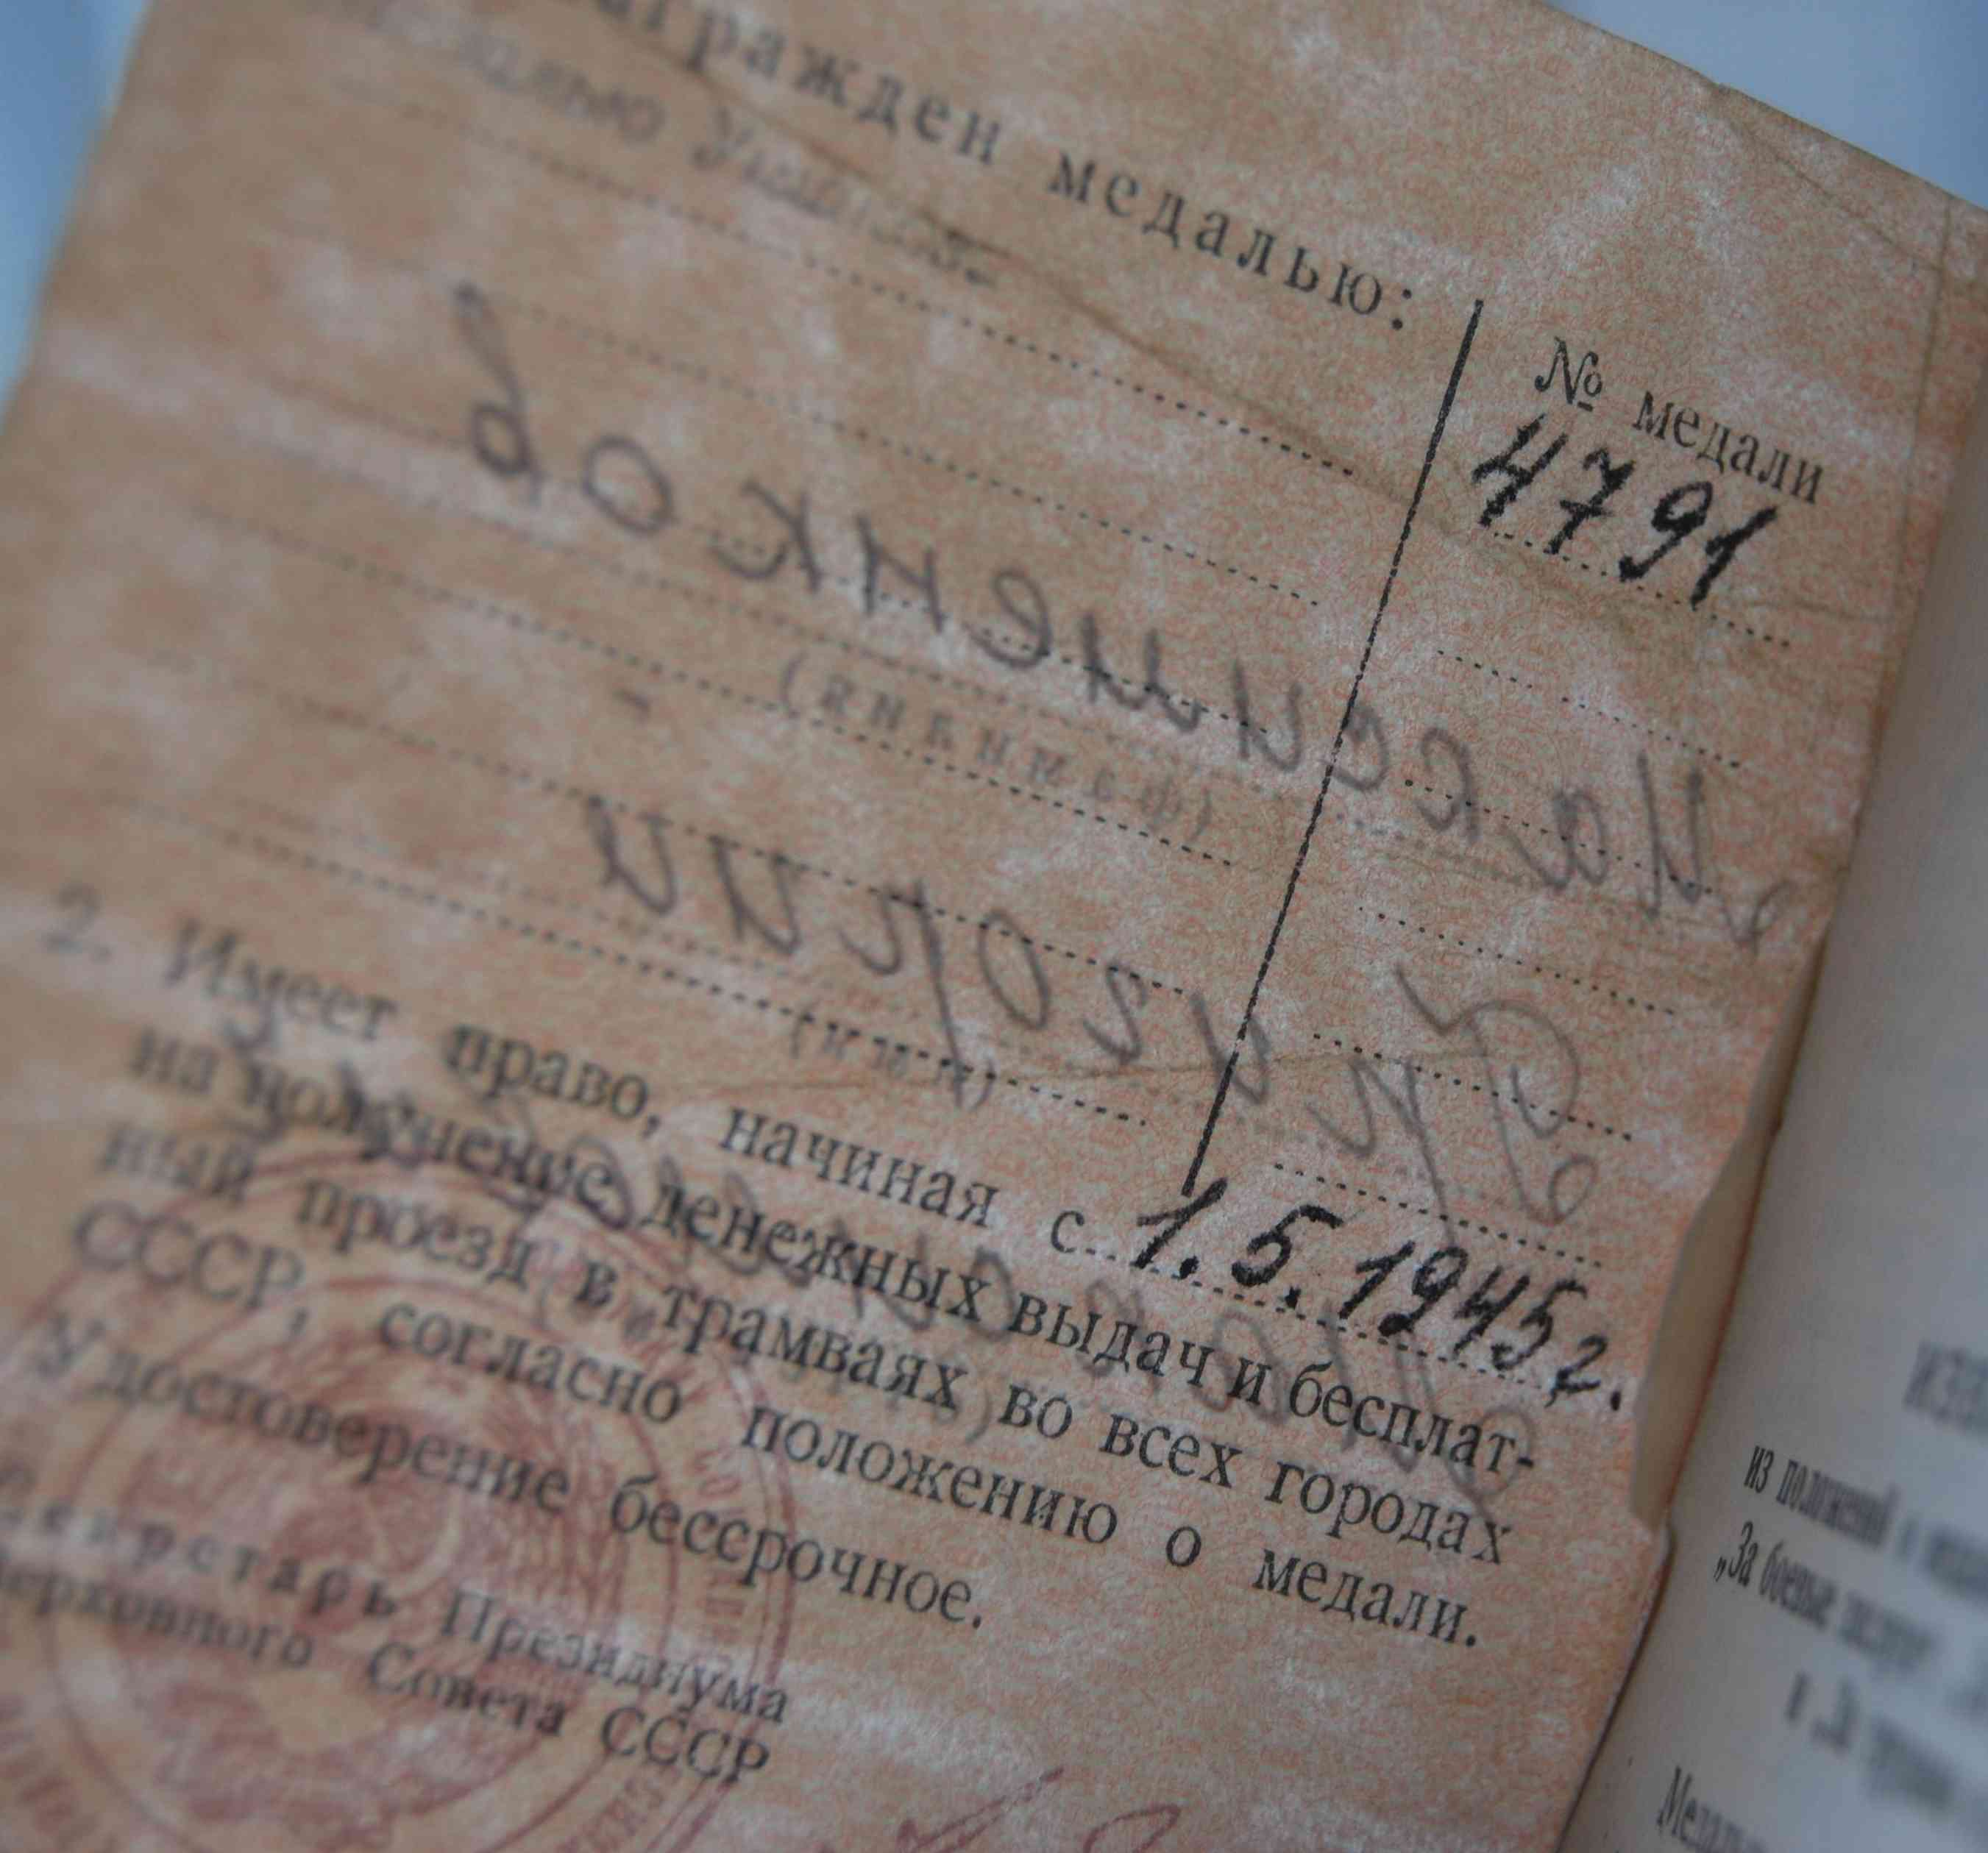 награжден медалью:
№ медали
4791
Максименков
(фамилия)
Григорий
(имя)
2. Имеет право, начиная с 1.5.1945г.
на получение денежных выдач и бесплат-
ный проезд в трамваях во всех городах
СССР, согласно положению о медали.
Удостоверение бессрочное.
Секретарь Президиума
Верховного Совета СССР
из положений о
„За боевые